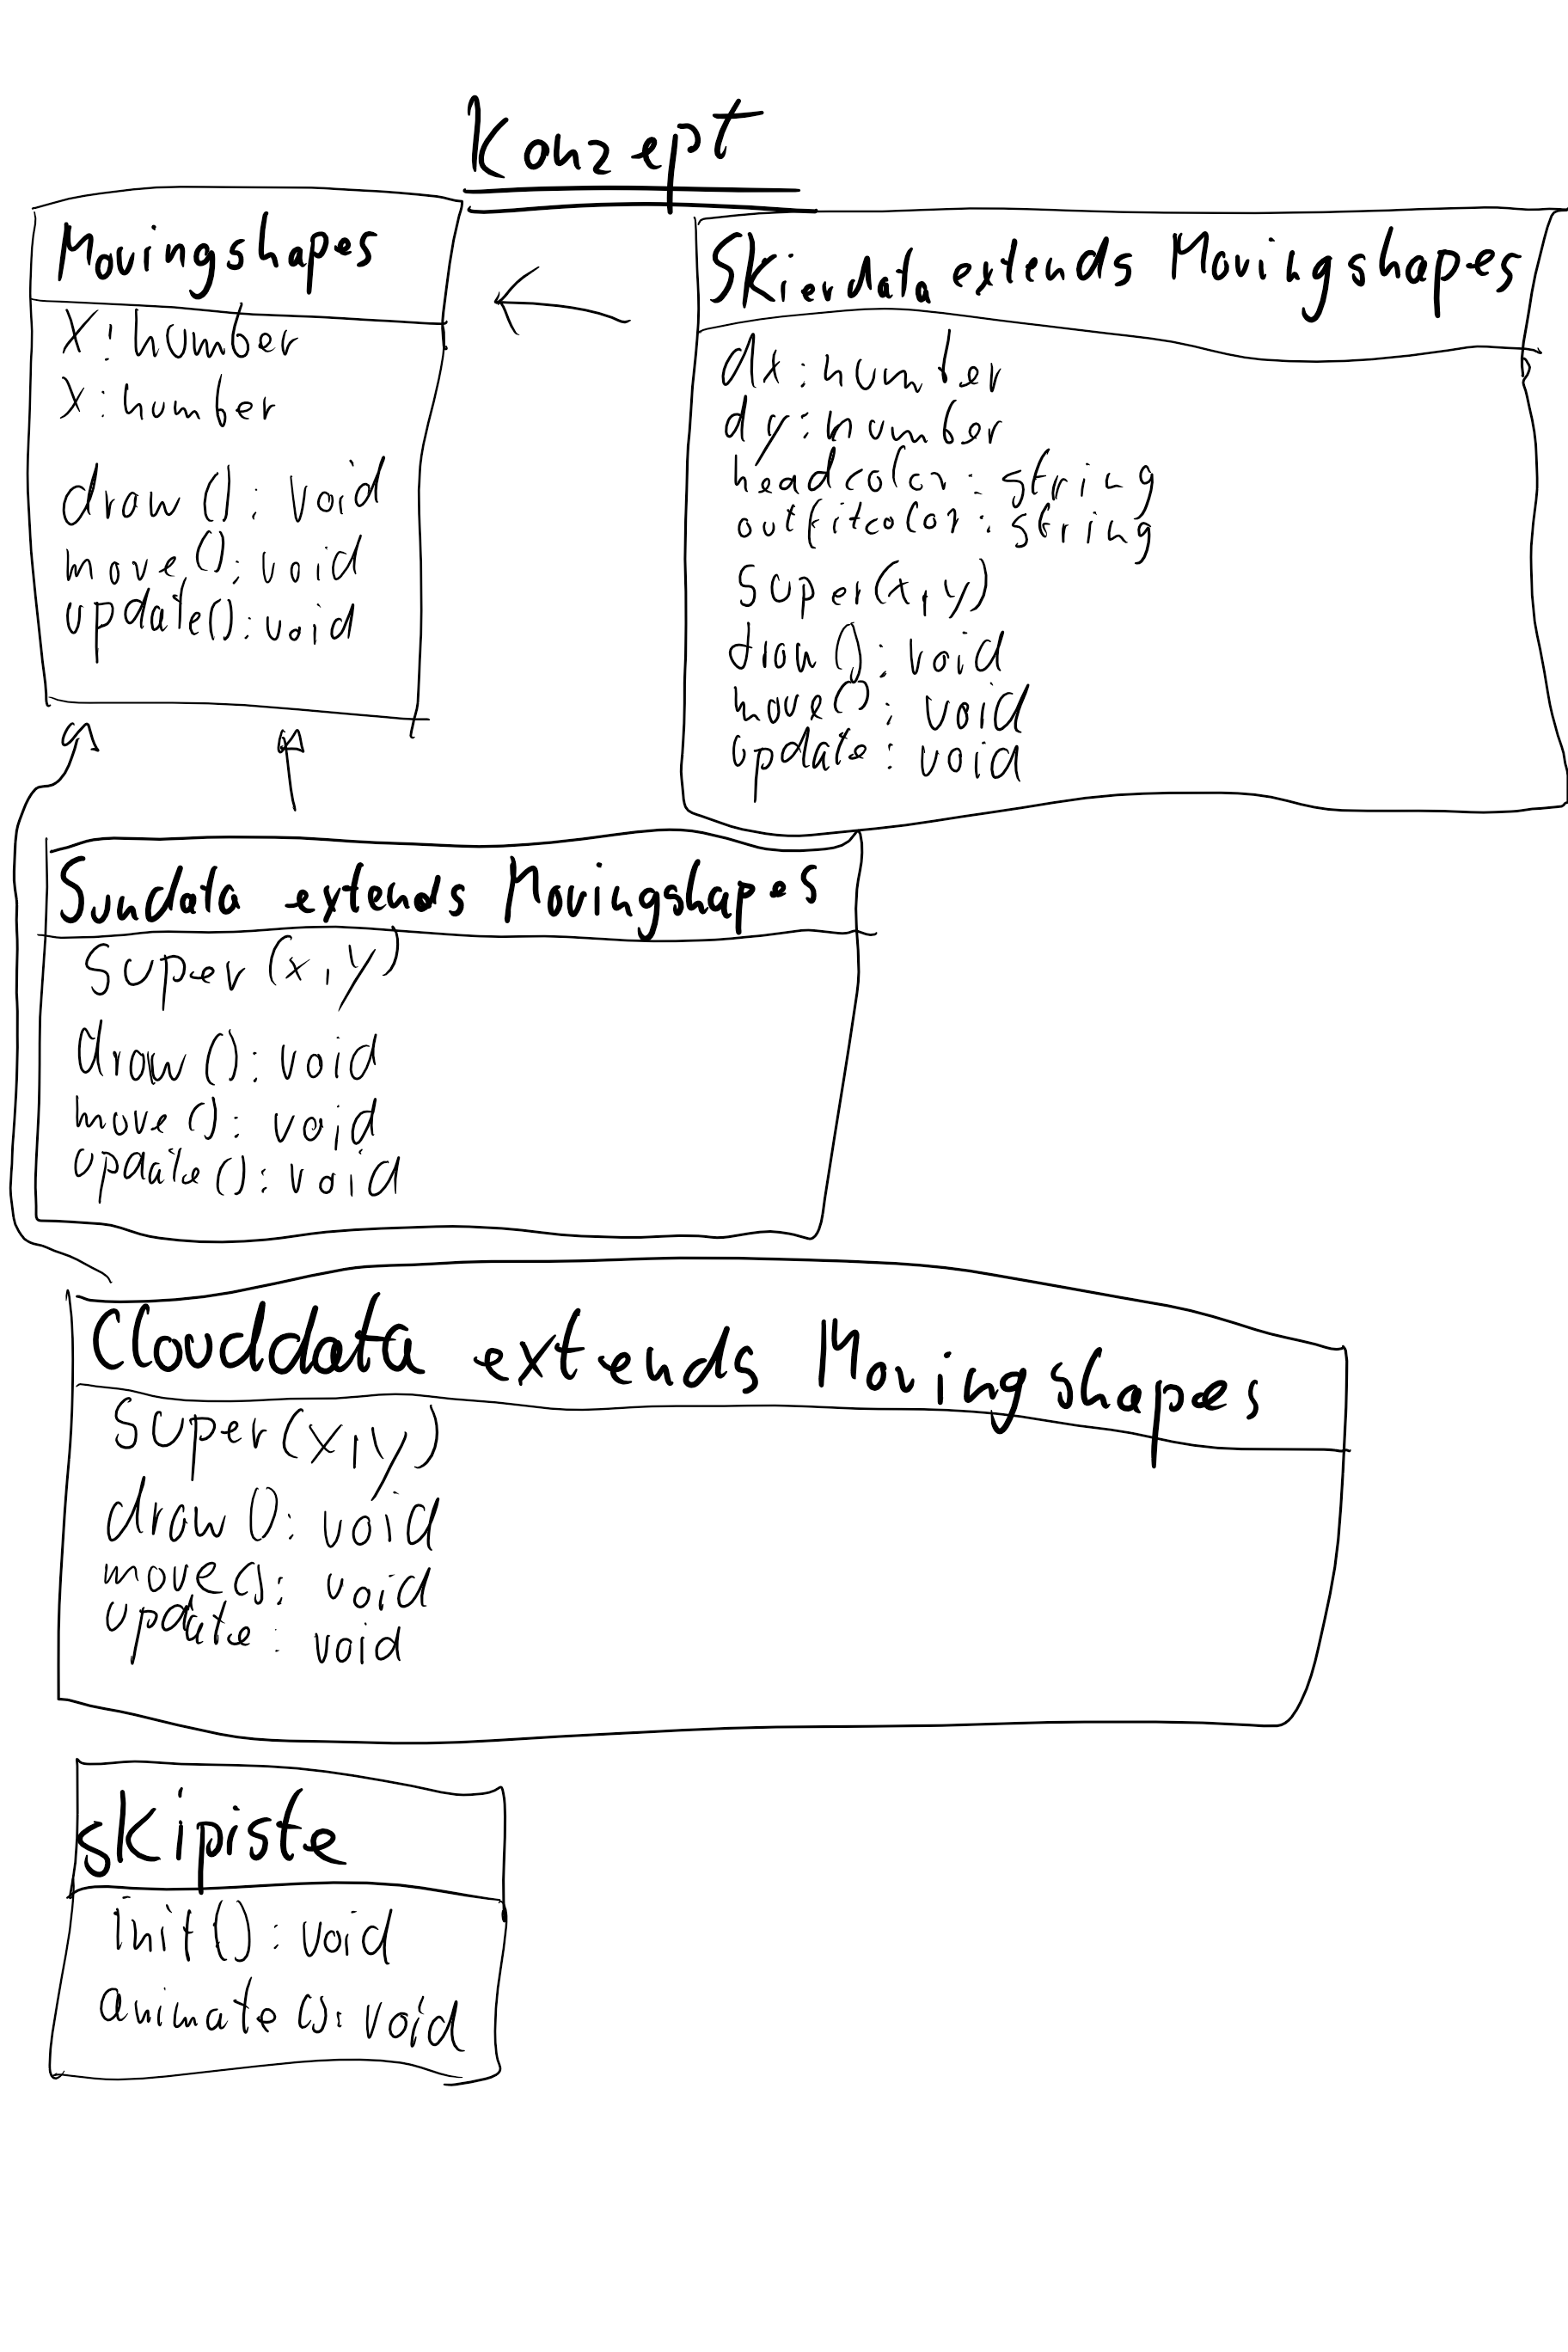 Konzept
Movingshapes
X: number
X: number
draw (): void
move(): void
update(): void
Skierdata extends Movingshapes
dx: number
dy: number
headcolor: string
outfitcolor: string
super(x,y)
draw(): void
move(): void
update: void
Sundata extends Movingshapes
super(x,y)
draw(): void
move(): void
update(): void
Clouddata extends Movingshapes
super(x,y)
draw(): void
move(): void
update: void
skipiste
init(): void
animate(): void